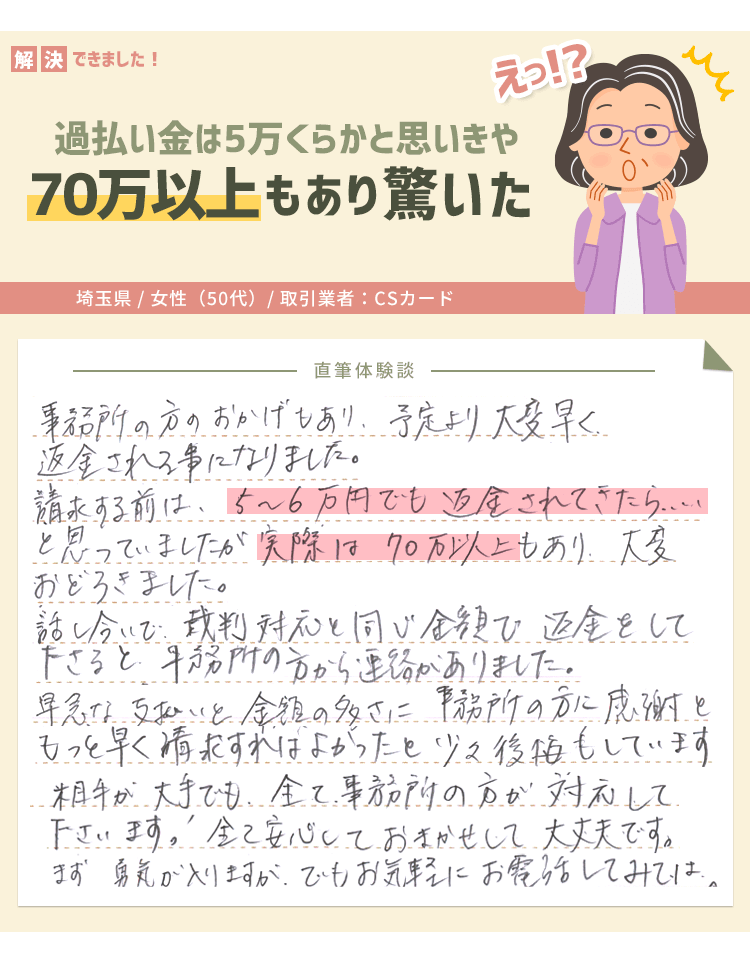 解決できました！
えっ!?
過払い金は5万くらかと思いきや
70万以上もあり驚いた
埼玉県 / 女性（50代）/ 取引業者：CSカード
直筆体験談
事務所の方のおかげもあり、予定より大変早く
返金される事になりました。
請求する前は、5～6万円でも返金されてきたら.....
と思っていましたが実際は70万以上もあり、大変
おどろきました。
話し合いで、裁判対応と同じ金額で返金をして
下さると、事務所の方から連絡がありました。
早急な支払いと金額の多さに事務所の方に感謝と
もっと早く請求すればよかったと少々後悔もしています
相手が大手でも、全て事務所の方が対応して
下さいます。全て安心しておまかせして大丈夫です。
まず勇気が入りますが、でもお気軽にお電話してみては。